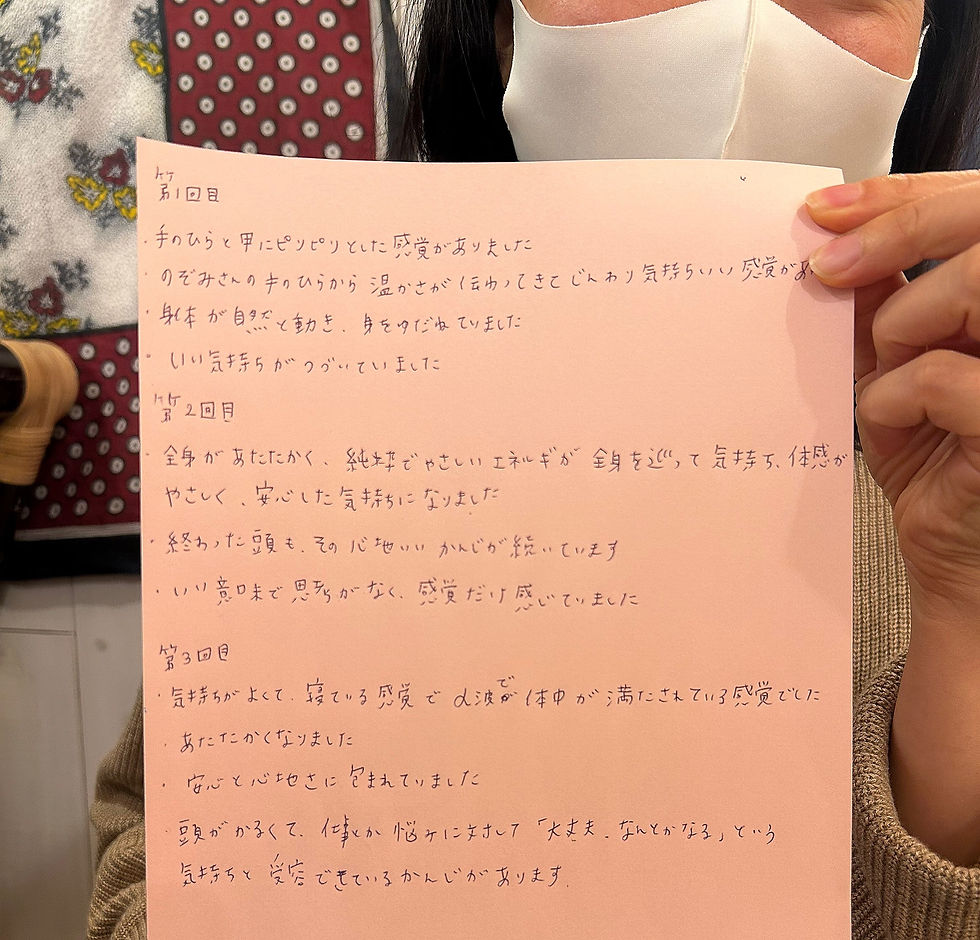 第1回目
・手のひらと甲にピリピリとした感覚がありました
・のぞみさんの手のひらから 温かさが伝わってきてじんわり気持ちいい感覚があ
・身体が自然と動き、身をゆだねていました
・いい気持ちがつづいていました
第2回目
・全身があたたかく、純粋でやさしいエネルギが全身を巡って気持ち、体感が
やさしく、安心した気持ちになりました
・終わった頭も、その心地いいかんじが続いています
・いい意味で思考がなく、感覚だけ感じていました
第3回目
・気持ちがよくて、寝ている感覚でα波で体中が満たされている感覚でした
・あたたかくなりました
・安心と心地さに包まれていました
・頭がかるくて、仕事とか悩みに対して「大丈夫、なんとかなる」という
気持ちと受容できているかんじがあります。